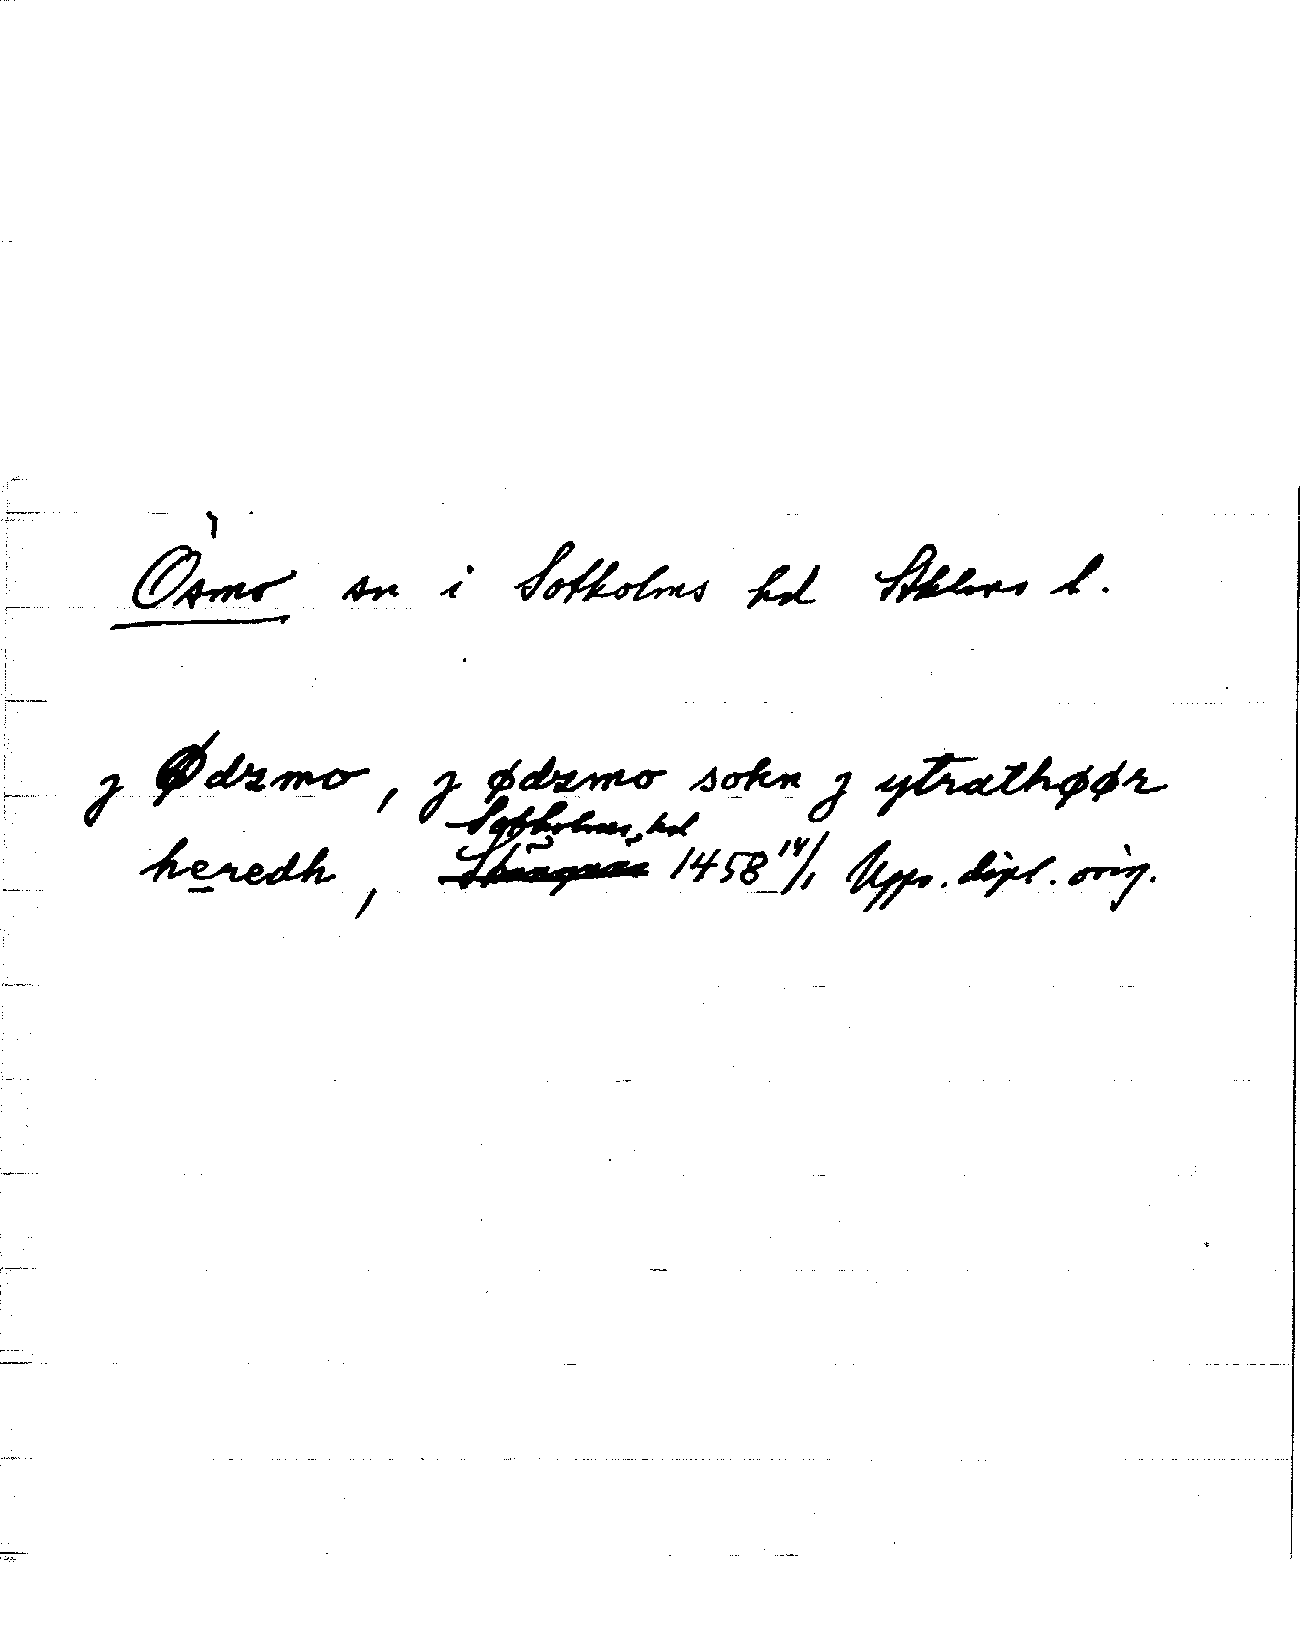 Ösmo sn i Sotholms hd Sthlms l.
j Ødzmo, j ødzmo sokn j ytrathøør
Sotholms hd
heredh, 1458 14/1 Upps. dipl. orig.